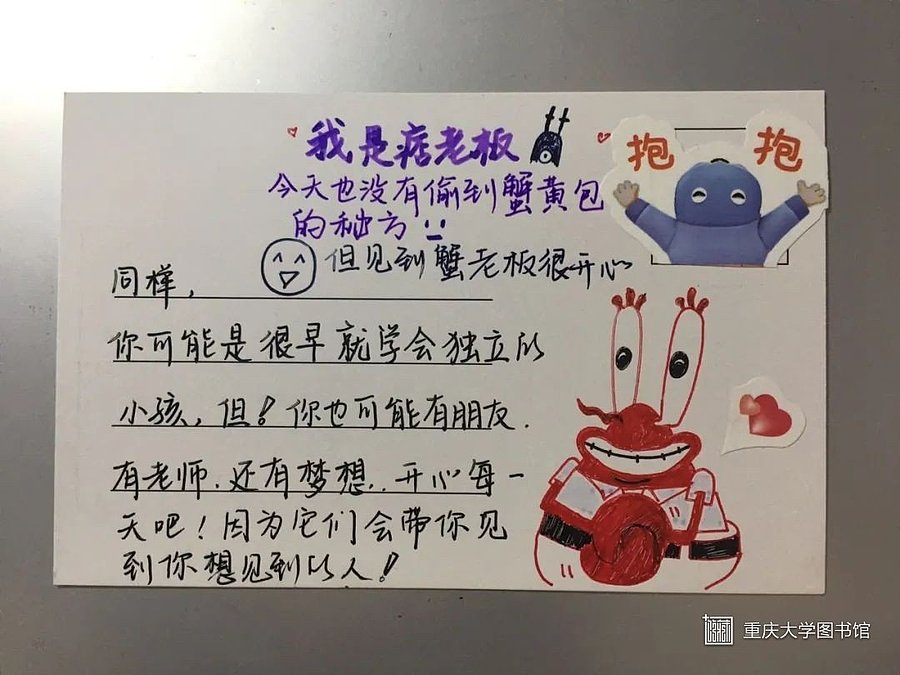 我是痞老板
抱 抱
今天也没有偷到蟹黄包
的秘方
但见到蟹老板很开心
同样，
你可能是很早就学会独立的
小孩，但！你也可能有朋友.
有老师.还有梦想..开心每一
天吧！因为它们会带你见
到你想见到的人！
重庆大学图书馆